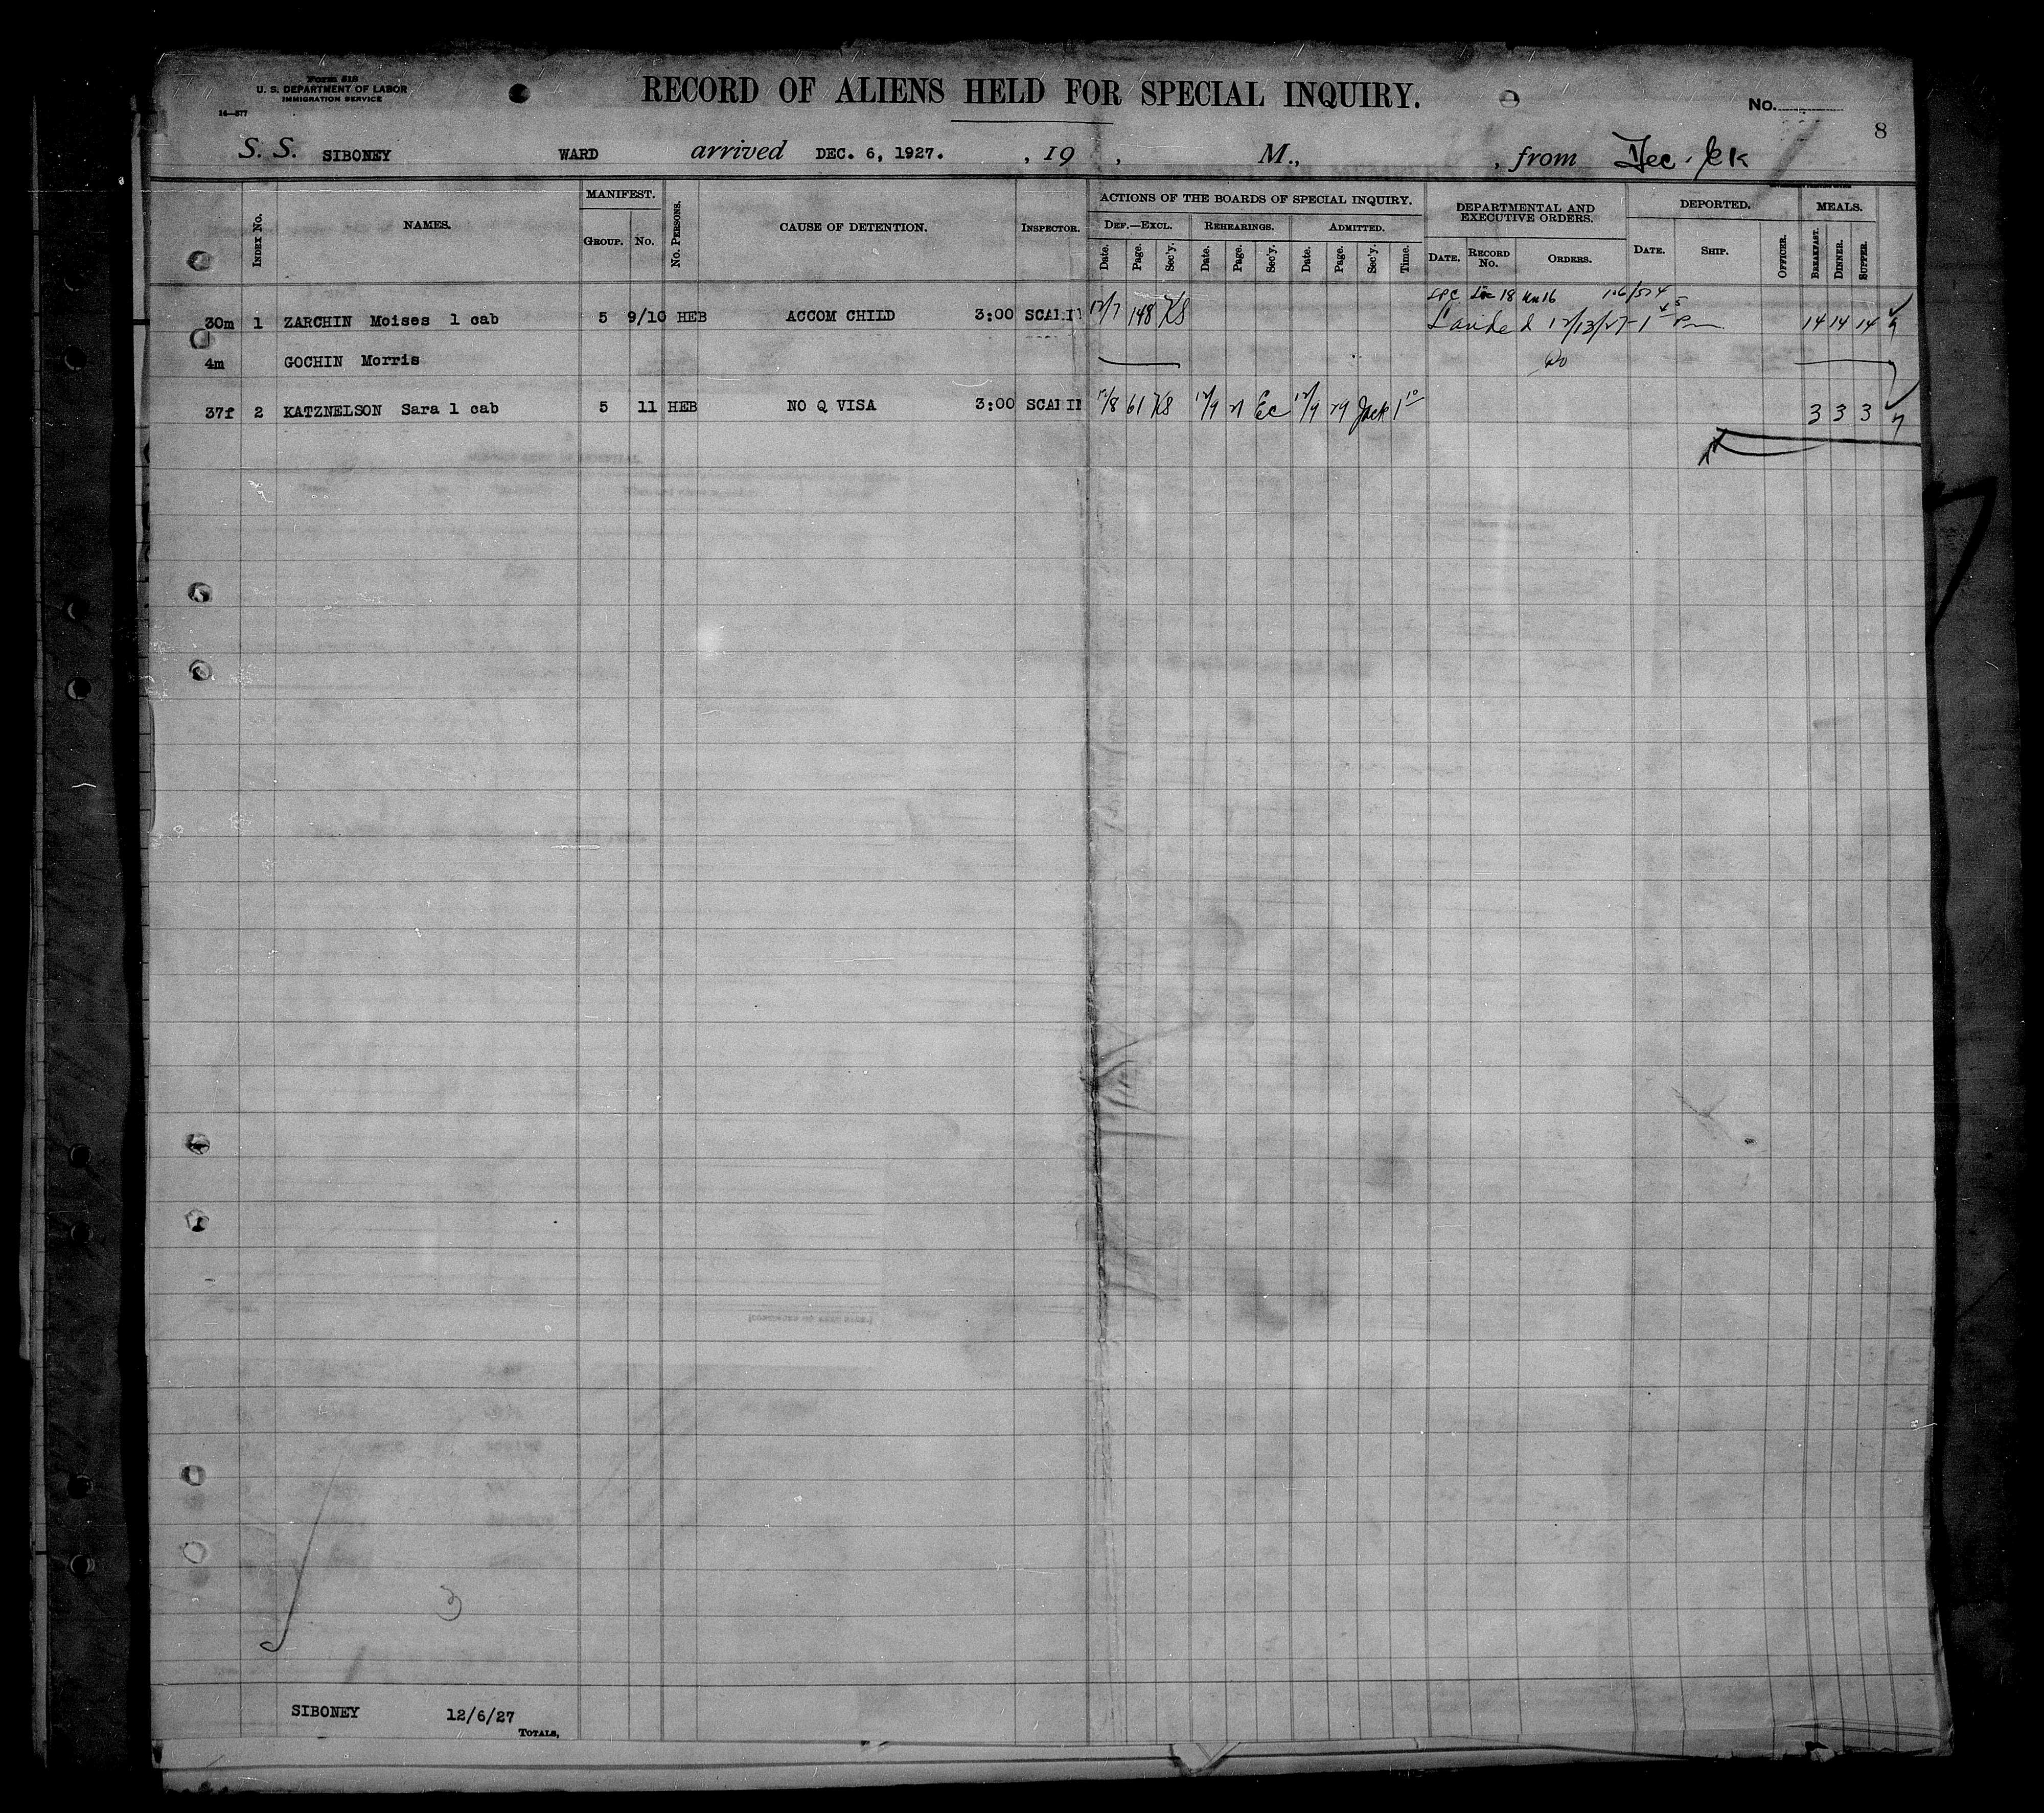 Form 518
U. S. DEPARTMENT OF LABOR
IMMIGRATION SERVICE
14—577
RECORD OF ALIENS HELD FOR SPECIAL INQUIRY.
No.
8
S. S. SIBONEY WARD arrived DEC. 6, 1927. , 19 , M., , from
INDEX No. NAMES. MANIFEST. GROUP. No. No. PERSONS. CAUSE OF DETENTION. INSPECTOR. ACTIONS OF THE BOARDS OF SPECIAL INQUIRY. DEF.—EXCL. Date. Page. Sec'y. REHEARINGS. Date. Page. Sec'y. ADMITTED. Date. Page. Sec'y. Time. DEPARTMENTAL AND EXECUTIVE ORDERS. DATE. RECORD No. ORDERS. DEPORTED. DATE. SHIP. OFFICER. MEALS. BREAKFAST. DINNER. SUPPER.
LPC 18 16
30m 1 ZARCHIN Moises 1 cab 5 9/10 HEB ACCOM CHILD 3:00 12/7 148 KS Landed 12/13/27 - 1 45 Pm 14 14 14
4m GOCHIN Morris Do
37f 2 KATZNELSON Sara 1 cab 5 11 HEB NO Q VISA 3:00 12/8 61 KS 12/9 Ec 12/9 Jack 1 10 3 3 3
3
SIBONEY 12/6/27
TOTALS,